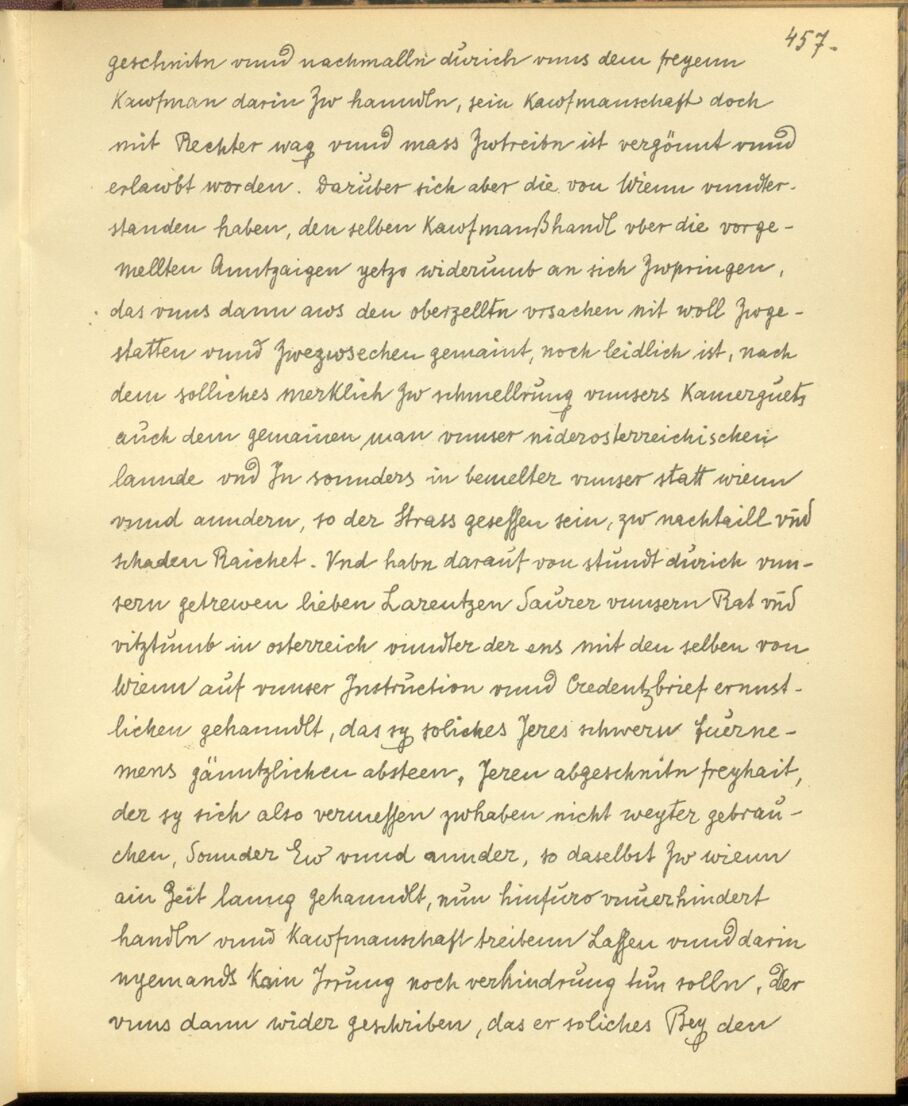 457.
geschnitn vnnd nachmalln dŭrich vnns dem freyenn
Kawfman darin Zw hanndln, sein Kawfmanschaft doch
mit Rechter wag vnnd mass Zwtreibn ist vergönnt vnnd
erlawbt worden. Darŭber sich aber die von Wienn vnndter-
standen haben, den selben Kawfmanßhandl vber die vorge-
mellten Anntzaigen yetzo widerŭmb an sich Zwpringen,
das vnns dann aws den oberzelltn vrsachen nit woll Zwge-
statten vnnd Zwezwsechen gemaint, noch leidlich ist, nach
dem solliches merklich Zw schmellrŭng vnnsers Kamergŭets
aŭch dem gemainen man vnnser niderosterreichischen
lannde vnd In sonnders in bemelter vnnser statt wienn
vnnd anndern, so der Strass gesessen sein, zw nachtaill vnd
schaden Raichet. Vnd habn daraŭf von stŭndt dŭrich vnn-
sern getrewen lieben Larentzen Saŭrer vnnsern Rat vnd
vitztŭmb in osterreich vnndter der ens mit den selben von
Wienn aŭf vnnser Instrŭction vnnd Credentzbrief ernnst-
lichen gehanndlt, das sy soliches Jeres schwern fŭerne-
mens gänntzlichen absteen, Jeren abgeschnitn freyhait,
der sy sich also vermessen zwhaben nicht weyter gebraŭ-
chen, Sonnder Ew vnnd annder, so daselbst Zw wienn
ain Zeit lanng gehanndlt, nŭn hinfŭro vnuerhindert
handln vnnd Kawfmanschaft treibenn Lassen vnnd darin
nyemands Kain Irrŭng noch verhindrŭng tŭn solln. Der
vnns dann wider geschriben, das er soliches Bey den